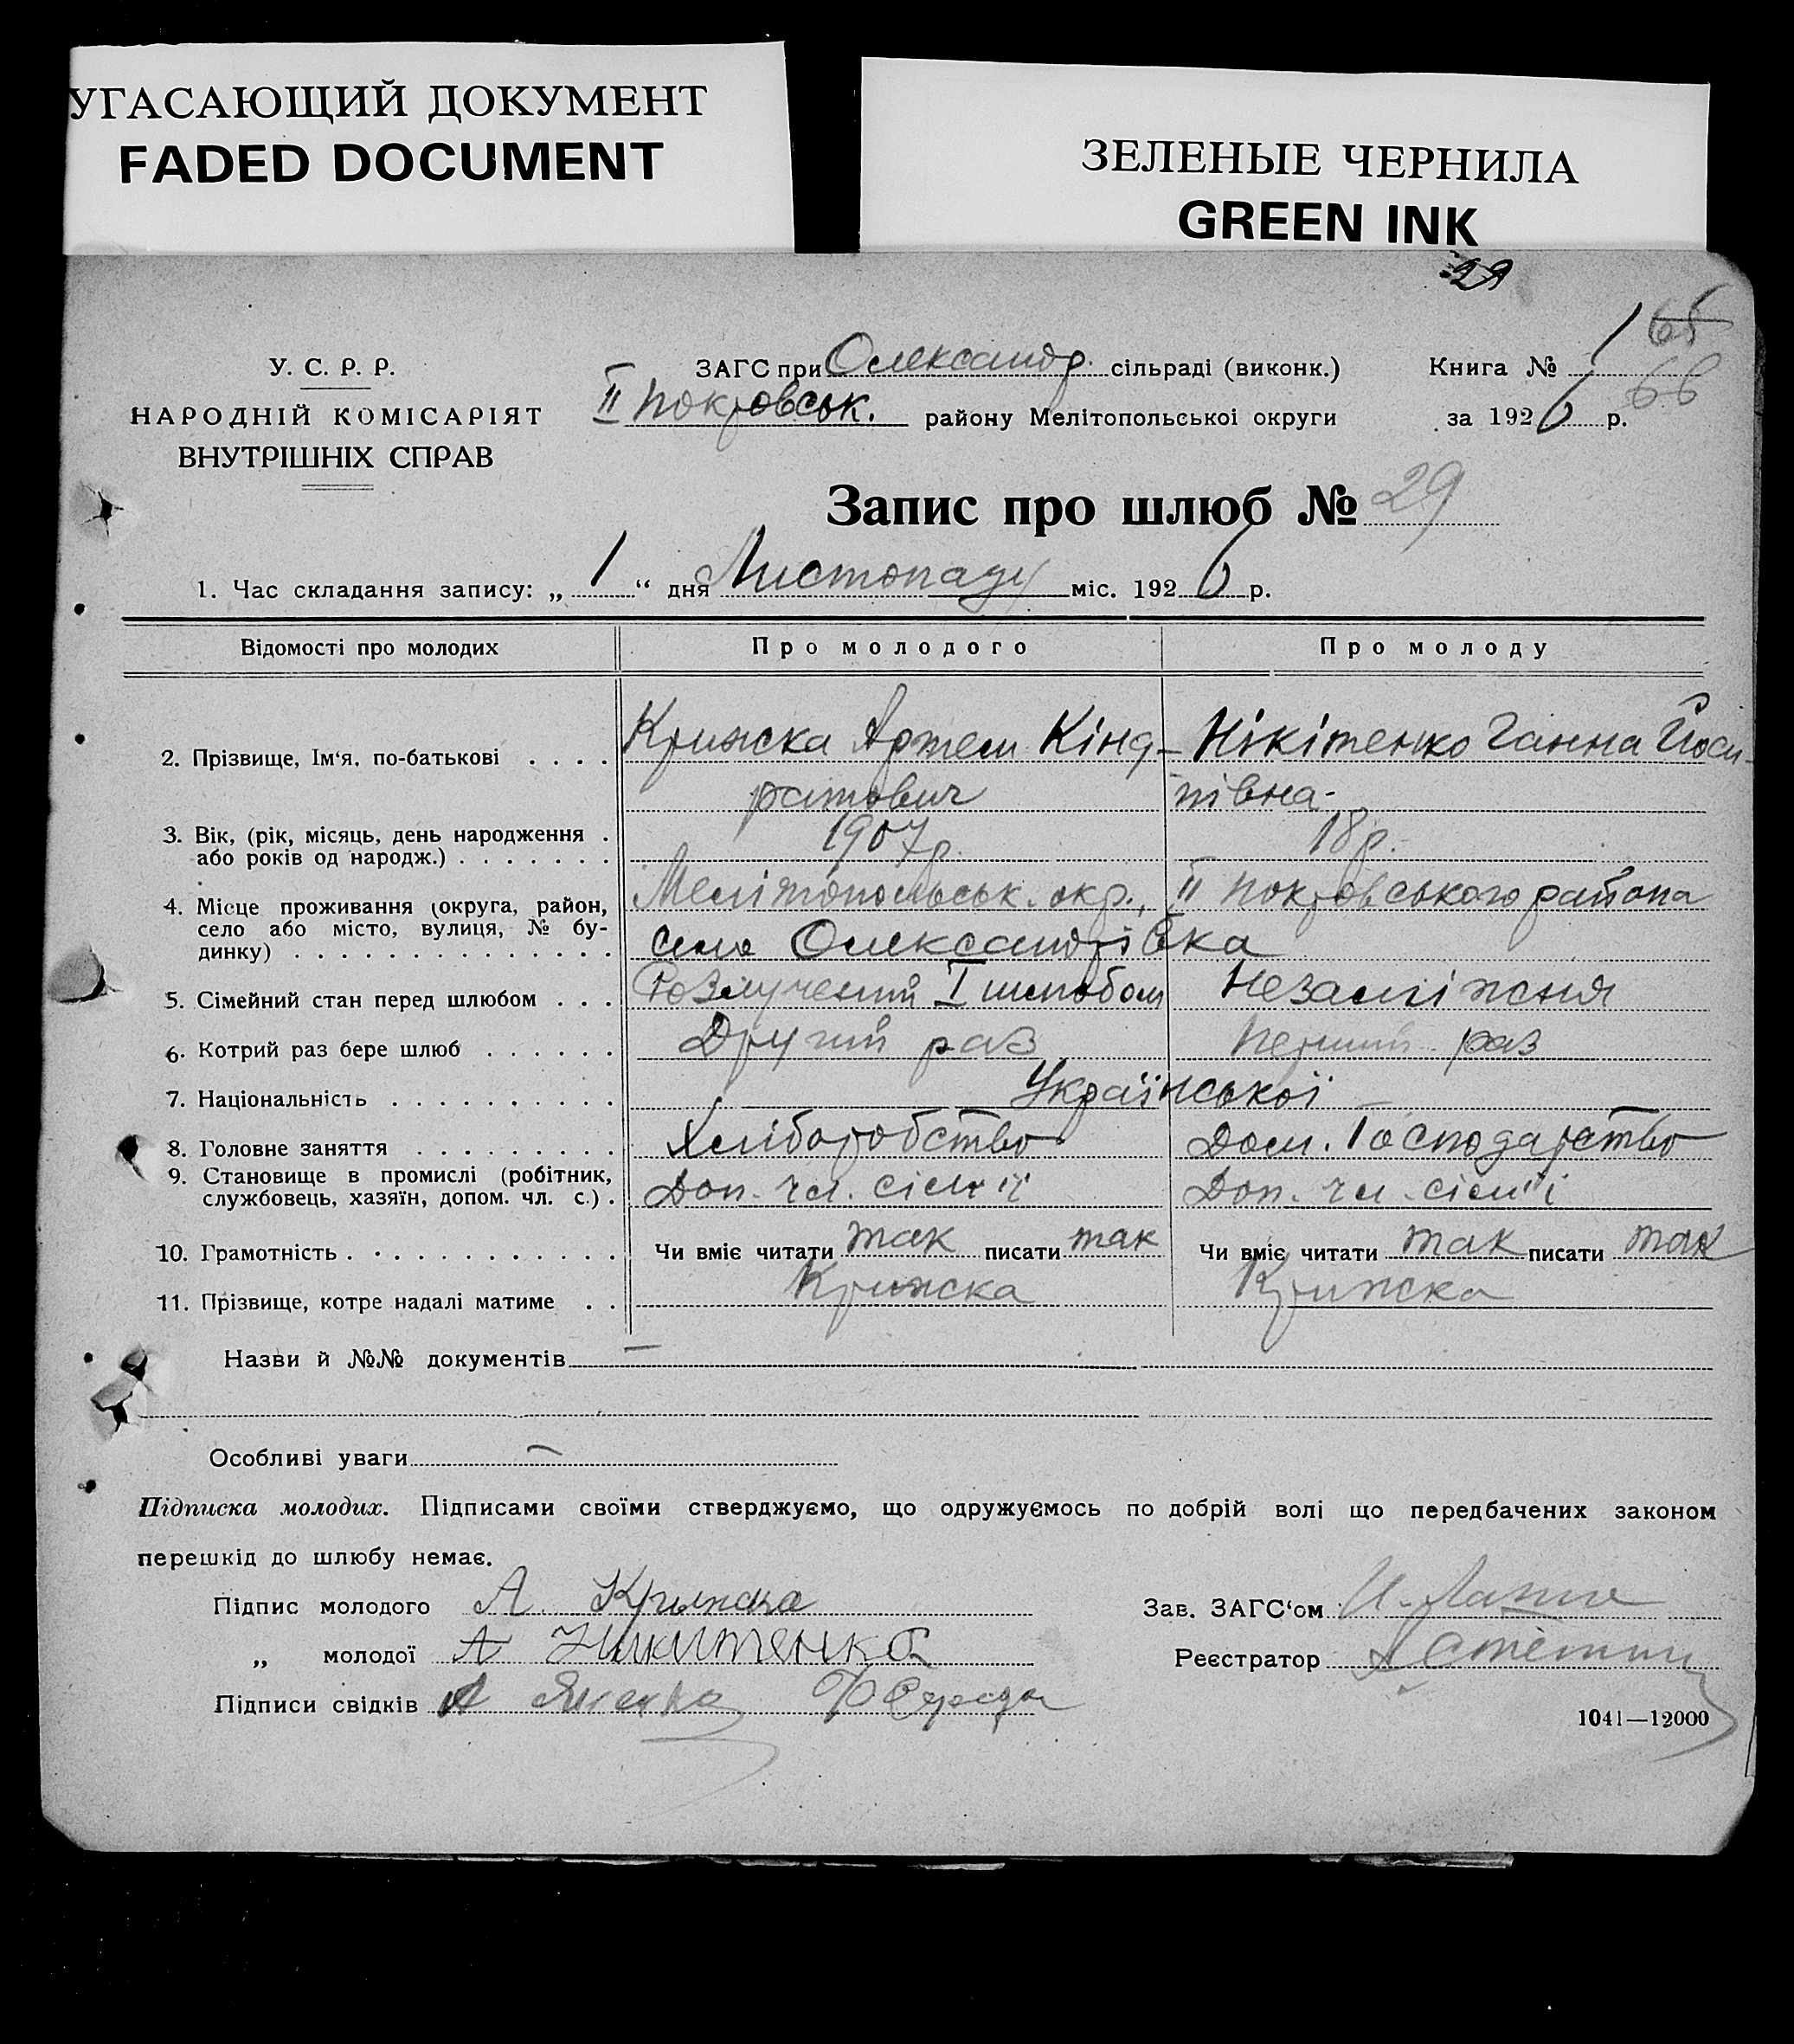 УГАСАЮЩИЙ ДОКУМЕНТ
FADED DOCUMENT
ЗЕЛЕНЫЕ ЧЕРНИЛА
GREEN INK
29
65
66
У. С. Р. Р.
НАРОДНІЙ КОМІСАРІЯТ
ВНУТРІШНІХ СПРАВ
ЗАГС при Олександр. сільраді (виконк.)
II Покровськ. району Мелітопольської округи
Книга № 1
за 1926 р.
Запис про шлюб № 29
1. Час складання запису: „ 1 “ дня Листопаду міс. 1926 р.
Відомості про молодих Про молодого Про молоду
2. Прізвище, Ім‘я, по-батькові . . . . Крижска Артем Кінд- Нікітенко Ганна Йоси-
ратович півна-
3. Вік, (рік, місяць, день народження . 1907р. 18р.
або років од народж.) . . . . . . .
4. Місце проживання (округа, район, Мелітопольськ. окр., II Покровського района
село або місто, вулиця, № бу- село Олександрівка
динку) . . . . . . . . . . . . . .
5. Сімейний стан перед шлюбом . . . Розлучений I шлюбом Незаміжня
6. Котрий раз бере шлюб . . . . . . Другий раз Перший раз
7. Національність . . . . . . . . . . Української
8. Головне заняття . . . . . . . . . Хліборобство Дом. Господарство
9. Становище в промислі (робітник,
службовець, хазяїн, допом. чл. с.) . Доп. чл. сім'ї Доп. чл. сім'ї
10. Грамотність . . . . . . . . . . . . Чи вміє читати так писати так Чи вміє читати так писати так
11. Прізвище, котре надалі матиме . . Крижска Крижска
Назви й №№ документів —
Особливі уваги —
Підписка молодих. Підписами своїми стверджуємо, що одружуємось по добрій волі що передбачених законом
перешкід до шлюбу немає.
Підпис молодого А Крижска
„ молодої А Никитенко
Підписи свідків А
Зав. ЗАГС‘ом И.
Реєстратор
1041—12000